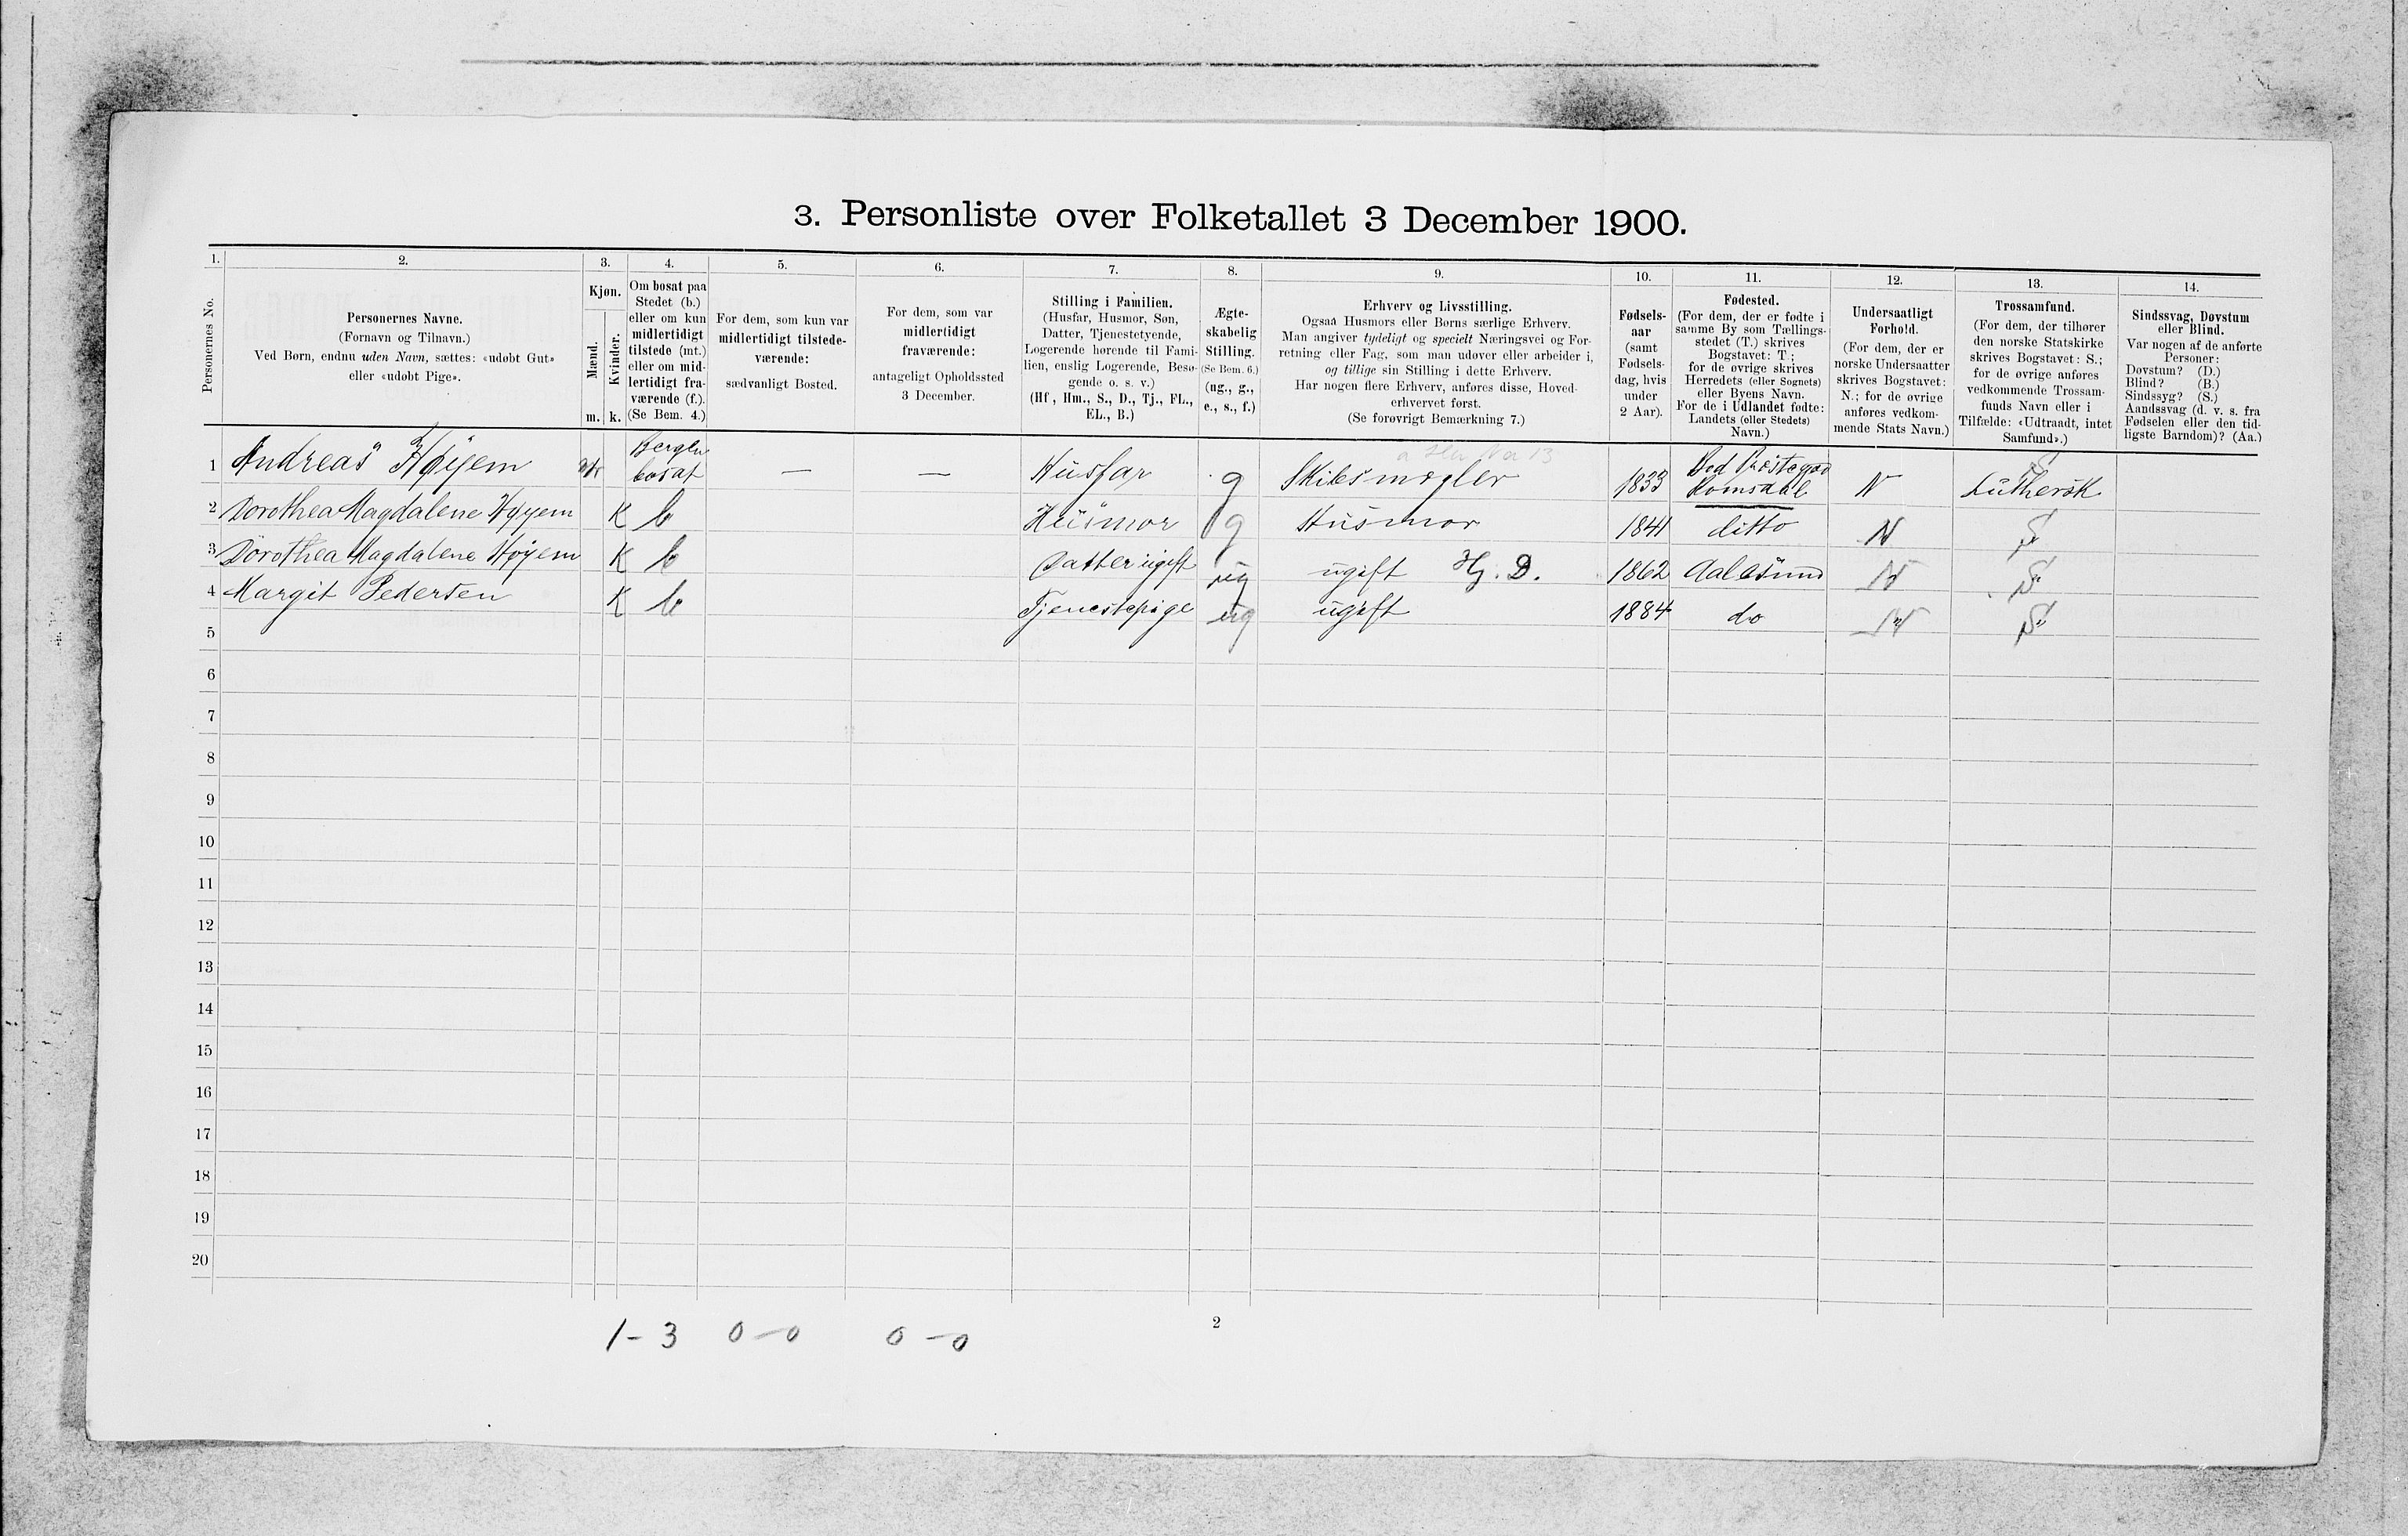 3. Personliste over Folketallet 3 December 1900.
1. 2. 3. 4. 5. 6. 7. 8. 9. 10. 11. 12. 13. 14.
Personernes No.
Personernes Navne.
(Fornavn og Tilnavn.)
Ved Børn, endnu uden Navn, sættes: «udøbt Gut»
eller «udøbt Pige».
Kjøn.
Mænd.
Kvinder.
m. k.
Om bosat paa
Stedet (b.)
eller om kun
midlertidigt
tilstede (mt.)
eller om mid-
lertidigt fra-
værende (f.).
(Se Bem. 4.)
For dem, som kun var
midlertidigt tilstede-
værende:
sædvanligt Bosted.
For dem, som var
midlertidigt
fraværende:
antageligt Opholdssted
3 December.
Stilling i Familien.
(Husfar, Husmor, Søn,
Datter, Tjenestetyende,
Logerende hørende til Fami-
lien, enslig Logerende, Besø-
gende o. s. v.)
(Hf, Hm., S., D., Tj., FL.,
EL., B.)
Ægte-
skabelig
Stilling.
(Se Bem. 6.)
(ug., g.,
e., s., f.)
Erhverv og Livsstilling.
Ogsaa Husmors eller Børns særlige Erhverv.
Man angiver tydeligt og specielt Næringsvei og For-
retning eller Fag, som man udøver eller arbeider i,
og tillige sin Stilling i dette Erhverv.
Har nogen flere Erhverv, anføres disse, Hoved-
erhvervet først.
(Se forøvrigt Bemærkning 7.)
Fødsels-
aar
(samt
Fødsels-
dag, hvis
under
2 Aar).
Fødested.
(For dem, der er fødte i
samme By som Tællings-
stedet (T.) skrives
Bogstavet: T.;
for de øvrige skrives
Herredets (eller Sognets)
eller Byens Navn.
For de i Udlandet fødte:
Landets (eller Stedets)
Navn.)
Undersaatligt
Forhold.
(For dem, der er
norske Undersaatter
skrives Bogstavet:
N.; for de øvrige
anføres vedkom-
mende Stats Navn.)
Trossamfund.
(For dem, der tilhører
den norske Statskirke
skrives Bogstavet: S.;
for de øvrige anføres
vedkommende Trossam-
funds Navn eller i
Tilfælde: «Udtraadt, intet
Samfund».)
Sindssvag, Døvstum
eller Blind.
Var nogen af de anførte
Personer:
Døvstum? (D.)
Blind? (B.)
Sindssyg? (S.)
Aandssvag (d. v. s. fra
Fødselen eller den tid-
ligste Barndom)? (Aa.)
1 Andreas Høyem bosat — — Husfar g Skibsmægler 1833 Romsdal N S Luthersk
2 Dorothea Magdalene Høyem K b Husmor g Husmor 1841 ditto N S
3 Dorothea Magdalene Høyem K b Datter ugift ug ugift Hj. D. 1862 Aalesund N S
4 Margit Pedersen K b Tjenestepige ug ugift 1884 do N S
5
6
7
8
9
10
11
12
13
14
15
16
17
18
19
20
1 - 3 0 - 0 0 - 0
2